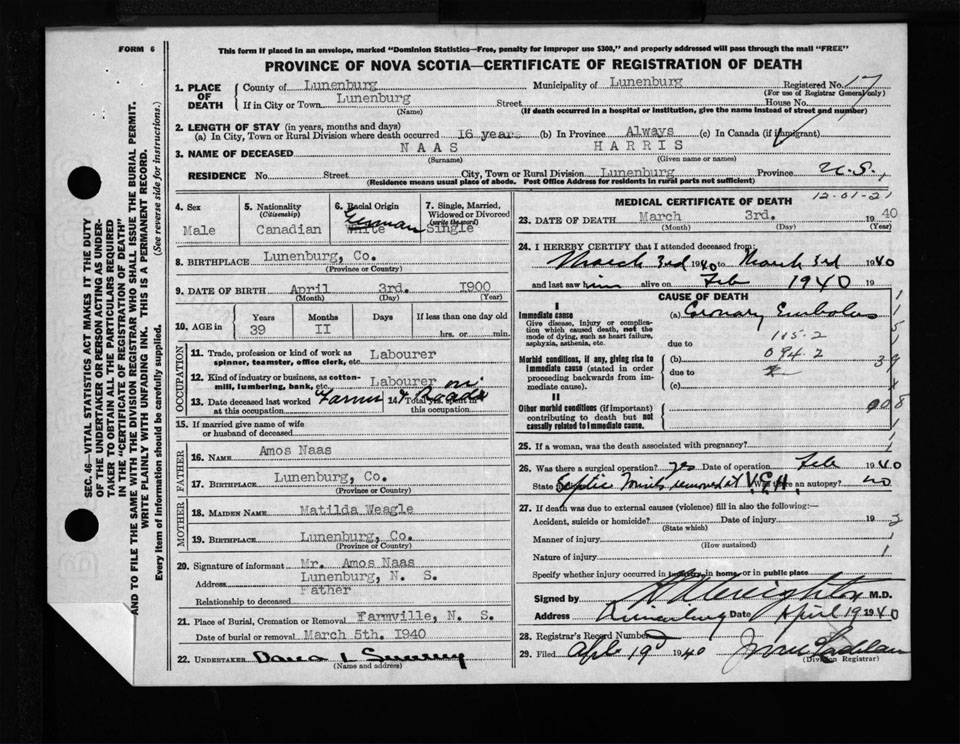 FORM 6
This form if placed in an envelope, marked "Dominion Statistics—Free, penalty for improper use $300," and properly addressed will pass through the mail "FREE"
PROVINCE OF NOVA SCOTIA—CERTIFICATE OF REGISTRATION OF DEATH
SEC. 46—VITAL STATISTICS ACT MAKES IT THE DUTY
OF THE UNDERTAKER OR PERSON ACTING AS UNDER-
TAKER TO OBTAIN ALL THE PARTICULARS REQUIRED
IN THE "CERTIFICATE OF REGISTRATION OF DEATH"
AND TO FILE THE SAME WITH THE DIVISION REGISTRAR WHO SHALL ISSUE THE BURIAL PERMIT.
WRITE PLAINLY WITH UNFADING INK. THIS IS A PERMANENT RECORD.
Every item of information should be carefully supplied. (See reverse side for instructions.)
1. PLACE OF DEATH
County of Lunenburg Municipality of Lunenburg Registered No. 17
(For use of Registrar General only)
If in City or Town Lunenburg Street House No.
(Name) (If death occurred in a hospital or institution, give the name instead of street and number)
2. LENGTH OF STAY (in years, months and days)
(a) In City, Town or Rural Division where death occurred 16 years (b) In Province Always (c) In Canada (if immigrant)
3. NAME OF DECEASED NAAS HARRIS
(Surname) (Given name or names)
RESIDENCE No. Street City, Town or Rural Division Lunenburg Province N.S.,
(Residence means usual place of abode. Post Office Address for residents in rural parts not sufficient)
4. Sex
Male
5. Nationality
(Citizenship)
Canadian
6. Racial Origin
German
White
7. Single, Married,
Widowed or Divorced
(write the word)
Single
8. BIRTHPLACE Lunenburg, Co.
(Province or Country)
9. DATE OF BIRTH April 3rd. 1900
(Month) (Day) (Year)
10. AGE in Years Months Days If less than one day old
39 II hrs. or min.
OCCUPATION
11. Trade, profession or kind of work as
spinner, teamster, office clerk, etc. Labourer
12. Kind of industry or business, as cotton-
mill, lumbering, bank, etc. Labourer on
13. Date deceased last worked
at this occupation Farms &
14. Total yrs. spent in
this occupation Roads
15. If married give name of wife
or husband of deceased
FATHER
16. NAME Amos Naas
17. BIRTHPLACE Lunenburg, Co.
(Province or Country)
MOTHER
18. MAIDEN NAME Matilda Weagle
19. BIRTHPLACE Lunenburg, Co.
(Province or Country)
20. Signature of informant Mr. Amos Naas
Address Lunenburg, N. S.
Relationship to deceased Father
21. Place of Burial, Cremation or Removal Farmville, N. S.
Date of burial or removal March 5th. 1940
22. UNDERTAKER Dana L Sweeny
(Name and address)
MEDICAL CERTIFICATE OF DEATH
12-01-21
23. DATE OF DEATH March 3rd. 1940
(Month) (Day) (Year)
24. I HEREBY CERTIFY that I attended deceased from:
March 3rd 1940 to March 3rd 1940
and last saw him alive on Feb 1940 19
CAUSE OF DEATH
I
Immediate cause
Give disease, injury or complica-
tion which caused death, not the
mode of dying, such as heart failure,
asphyxia, asthenia, etc.
(a) Coronary Embolus
115-2
due to
094-2
(b)
due to
(c)
Morbid conditions, if any, giving rise to
immediate cause (stated in order
proceeding backwards from im-
mediate cause).
II
Other morbid conditions (if important)
contributing to death but not
causally related to immediate cause.
25. If a woman, was the death associated with pregnancy?
26. Was there a surgical operation? yes Date of operation Feb 1940
State Septic Tonsils removed at V.G.H. Was there an autopsy? no
27. If death was due to external causes (violence) fill in also the following:—
Accident, suicide or homicide? Date of injury 19
(State which)
Manner of injury
(How sustained)
Nature of injury
Specify whether injury occurred in industry, in home or in public place
Signed by M.D.
Address Lunenburg Date April 19 1940
28. Registrar's Record Number
29. Filed Apl 19 1940
(Division Registrar)